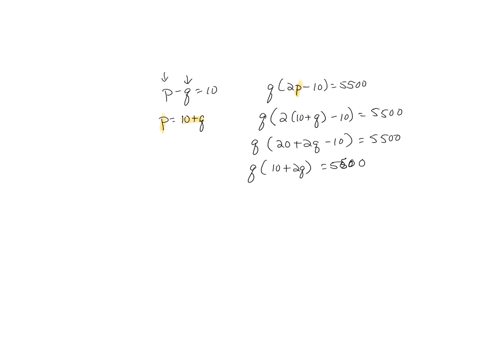 p - q = 10
p = 10+q
q(2p-10) = 5500
q(2(10+q)-10) = 5500
q(20+2q-10) = 5500
q(10+2q) = 5500